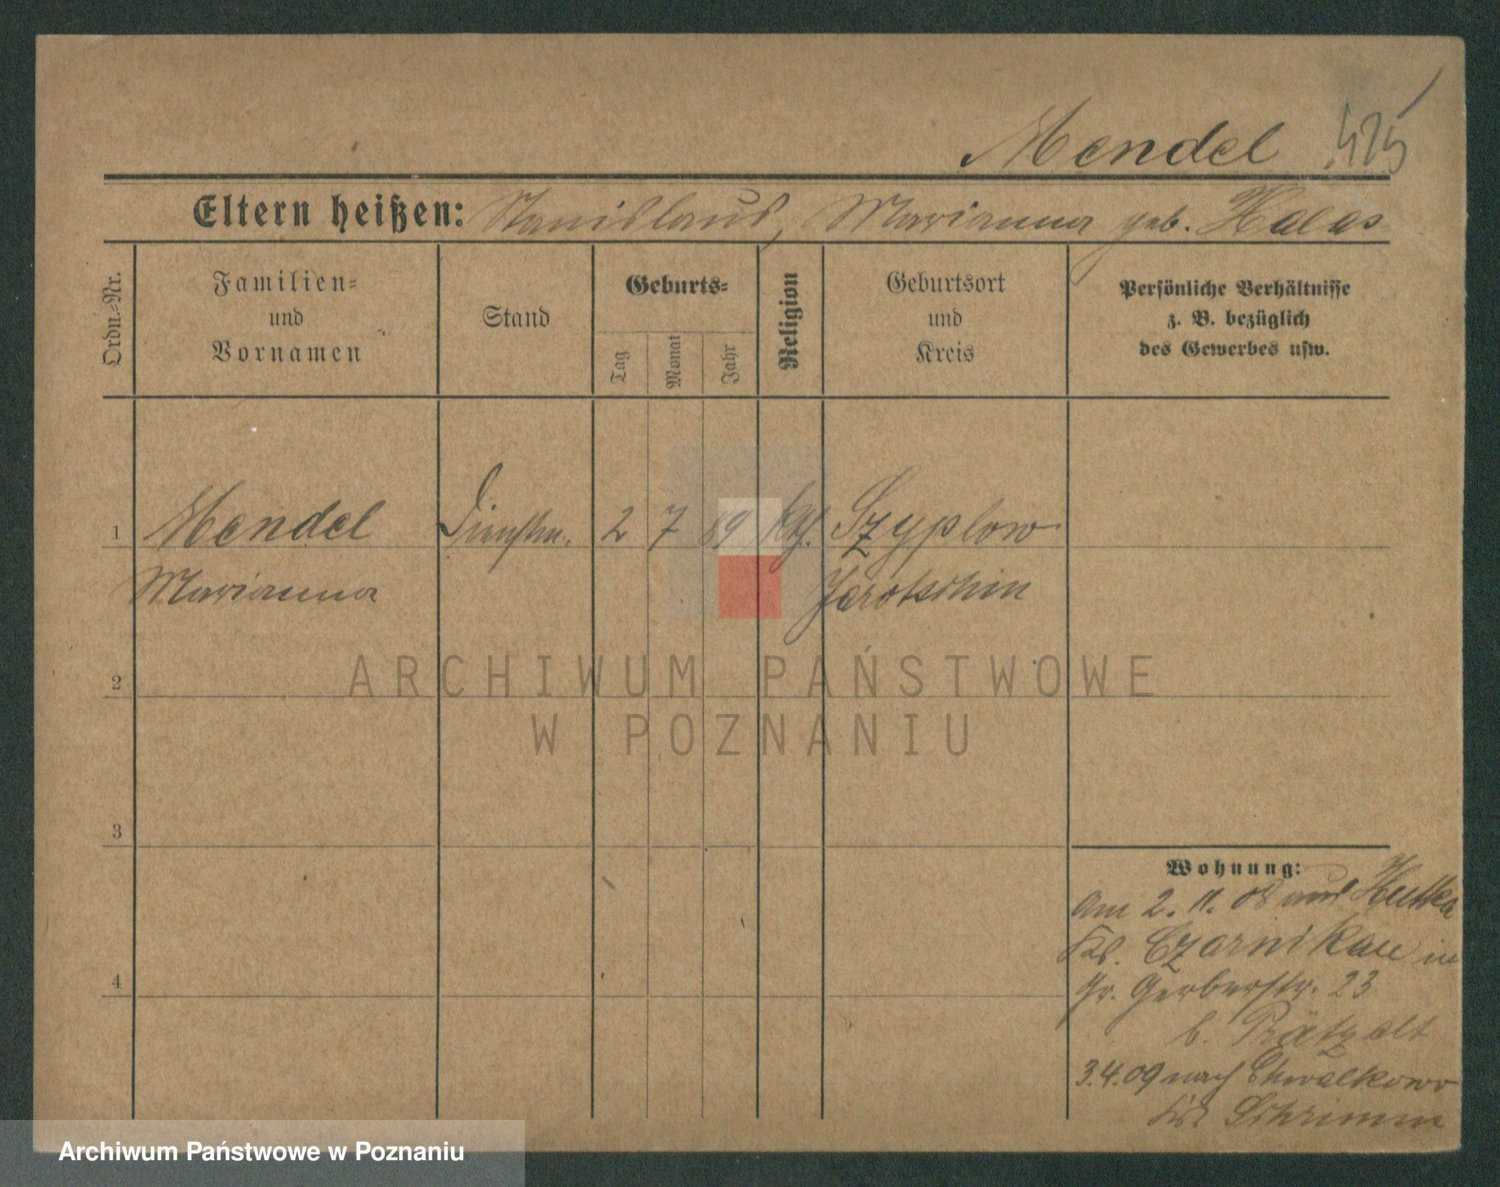 Mendel 425
Eltern heißen: Stanislaus, Marianna geb. Halas
Ordn.-Nr.
Familien-
und
Vornamen
Stand
Geburts-
Tag
Monat
Jahr
Religion
Geburtsort
und
Kreis
Persönliche Verhältnisse
z. B. bezüglich
des Gewerbes usw.
1 Mendel Dienstm. 2 7 89 kth. Szyplow
Marianna Jarotschin
2
ARCHIWUM PAŃSTWOWE
W POZNANIU
3
Wohnung:
Am 2. 11. 08 aus Huttka
Ks. Czarnikau in
4
Gr. Gerberstr. 23
b.
3.4.09 nach Chwalkowo
Krs Schrimm
Archiwum Państwowe w Poznaniu